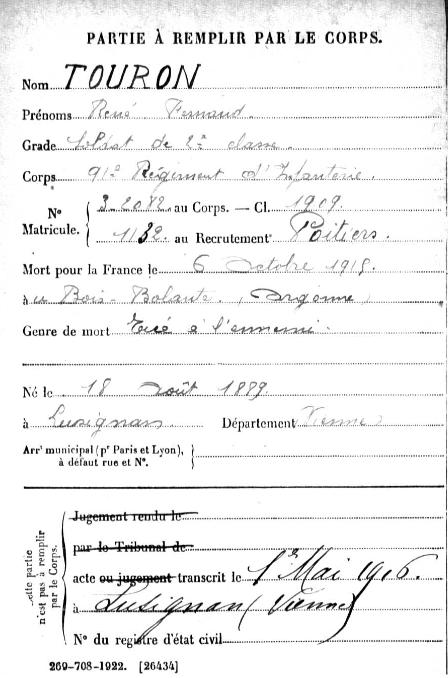 PARTIE À REMPLIR PAR LE CORPS.
Nom TOURON
Prénoms René Fernand.
Grade Soldat de 2e classe.
Corps 91e Régiment d'Infanterie.
N° Matricule. { 3.2082. au Corps. — Cl. 1909.
1132. au Recrutement Poitiers.
Mort pour la France le 6 Octobre 1915.
à au Bois-Bolante. (Argonne)
Genre de mort Tué à l'ennemi.
Né le 18 Août 1889
à Lusignan Département Vienne
Arrt municipal (pr Paris et Lyon), à défaut rue et N°.
cette partie n'est pas à remplir par le Corps.
Jugement rendu le
par le Tribunal de
acte ou jugement transcrit le 1er Mai 1916.
à Lusignan (Vienne)
N° du registre d'état civil
269-708-1922. [26434]